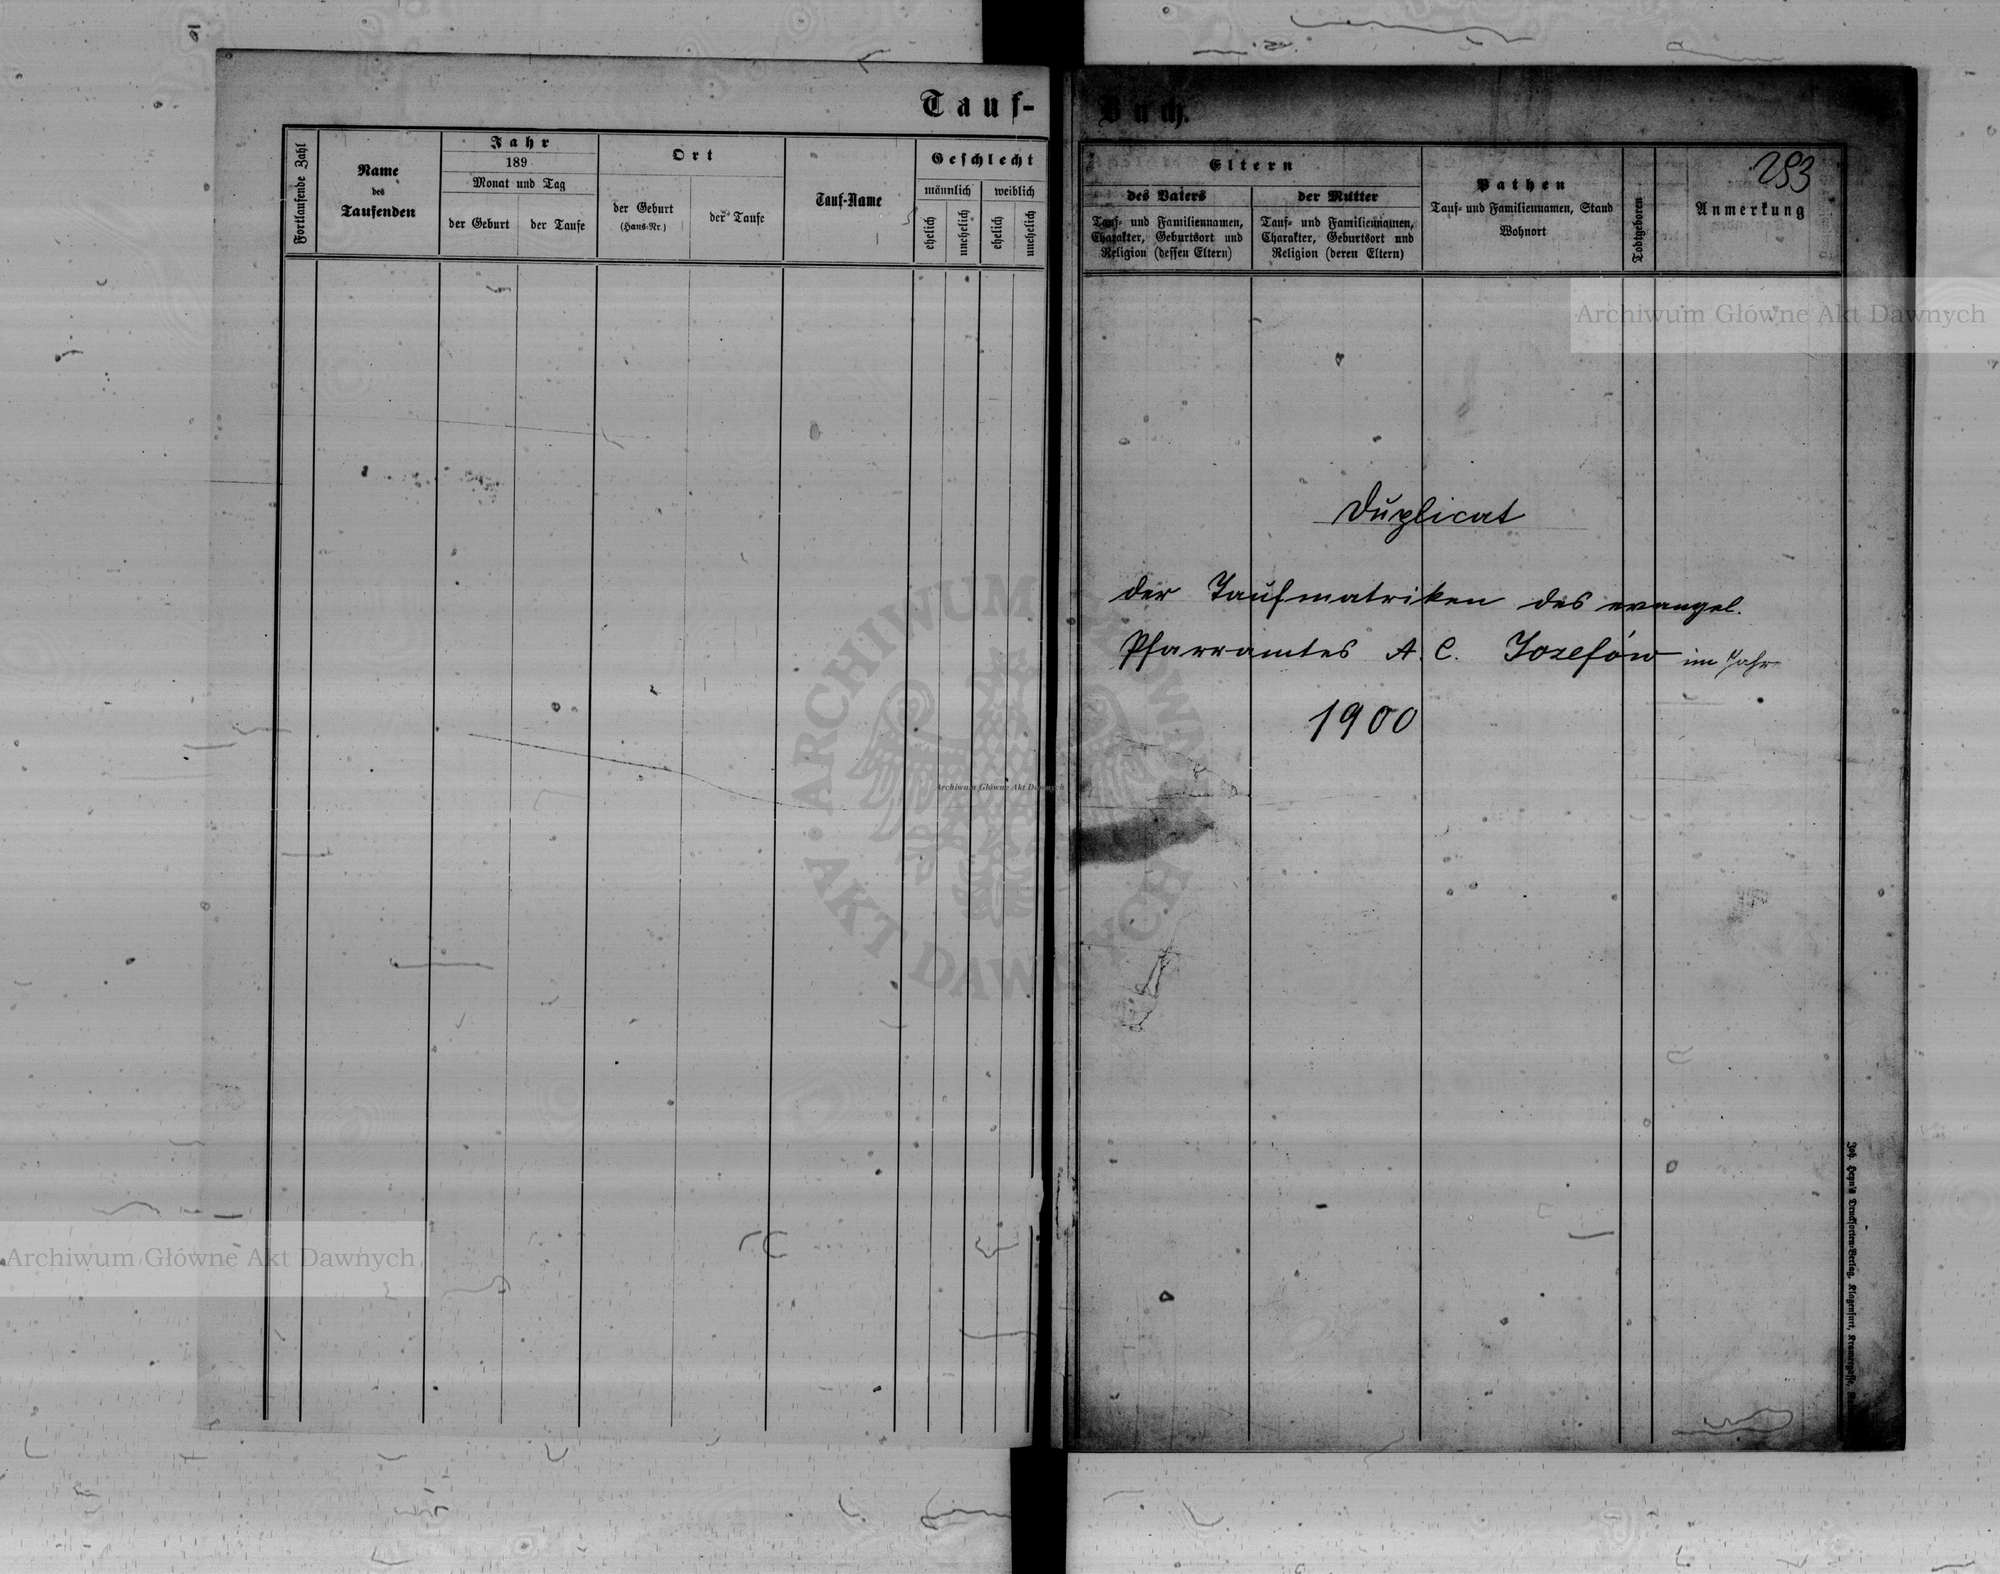 Tauf-
Fortlaufende Zahl
Name
des
Taufenden
Jahr
189
Monat und Tag
der Geburt
der Taufe
Ort
der Geburt
(Haus-Nr.)
der Taufe
Tauf-Name
Geschlecht
männlich
weiblich
ehelich
unehelich
ehelich
unehelich
Buch.
293
Eltern
des Vaters
Tauf- und Familiennamen,
Charakter, Geburtsort und
Religion (dessen Eltern)
der Mutter
Tauf- und Familiennamen,
Charakter, Geburtsort und
Religion (deren Eltern)
Pathen
Tauf- und Familiennamen, Stand
Wohnort
Todtgeboren
Anmerkung
Archiwum Główne Akt Dawnych
Duplicat
der Taufmatriken des evangel.
Pfarramtes A. C. Josefów im Jahr
1900
ARCHIWUM GŁÓWNE AKT DAWNYCH
Archiwum Główne Akt Dawnych
Archiwum Główne Akt Dawnych
Joh. Heyn's Drucksorten-Verlag, Klagenfurt, Kramergasse,